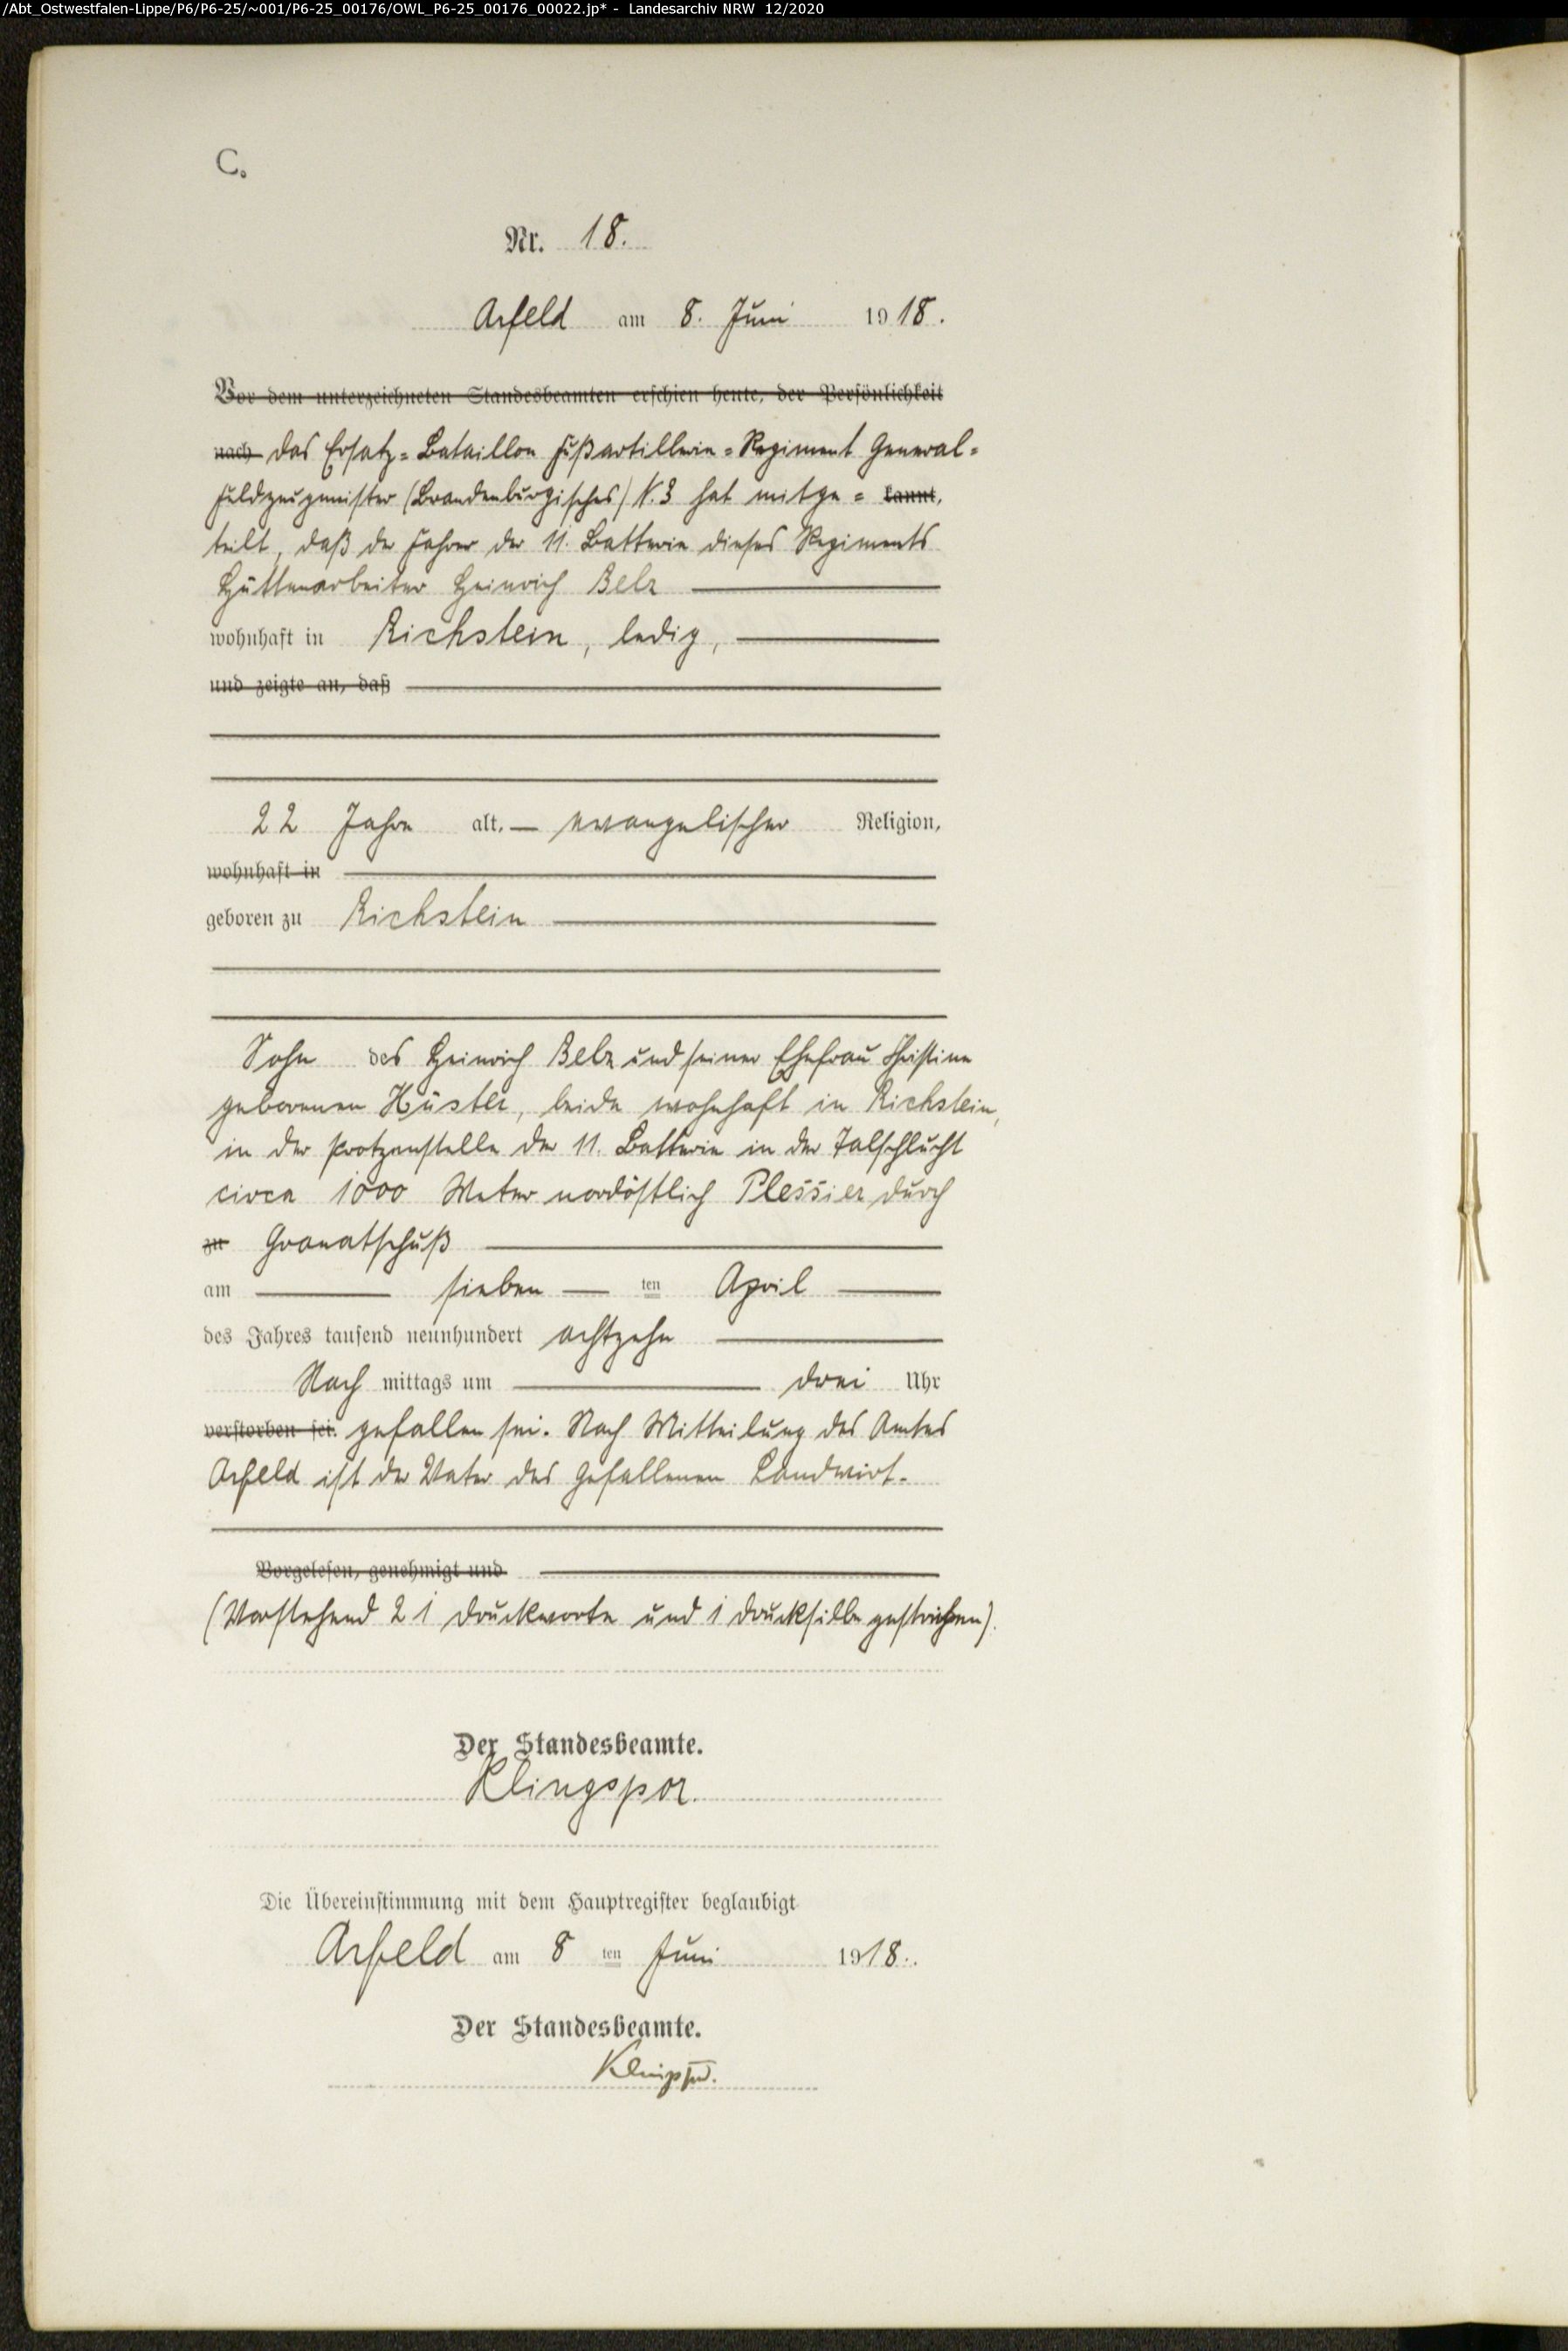 /Abt_Ostwestfalen-Lippe/P6/P6-25/~001/P6-25_00176/OWL_P6-25_00176_00022.jp* - Landesarchiv NRW 12/2020
C.
Nr. 18.
Arfeld am 8. Juni 1918.
Vor dem unterzeichneten Standesbeamten erschien heute, der Persönlichkeit
nach das Ersatz=Bataillon Fußartillerie=Regiment General=
feldzeugmeister (Brandenburgisches) N. 3 hat mitge= kannt,
teilt, daß der Fahrer der 11. Batterie dieses Regiments
Hüttenarbeiter Heinrich Belz
wohnhaft in Richstein, ledig,
und zeigte an, daß
22 Jahre alt, evangelischer Religion,
wohnhaft in
geboren zu Richstein
Sohn des Heinrich Belz und seiner Ehefrau Christine
geborenen Hüster, beide wohnhaft in Richstein,
in der Protzenstelle der 11. Batterie in der Talschlucht
circa 1000 Meter nordöstlich Plessier durch
zu Granatschuß
am sieben ten April
des Jahres tausend neunhundert achtzehn
Nach mittags um drei Uhr
verstorben sei. gefallen sei. Nach Mitteilung des Amtes
Arfeld ist der Vater des Gefallenen Landwirt.
Vorgelesen, genehmigt und
(Vorstehend 21 Druckworte und 1 Drucksilbe gestrichen).
Der Standesbeamte.
Klingspor.
Die Übereinstimmung mit dem Hauptregister beglaubigt
Arfeld am 8 ten Juni 1918.
Der Standesbeamte.
Klingspor.